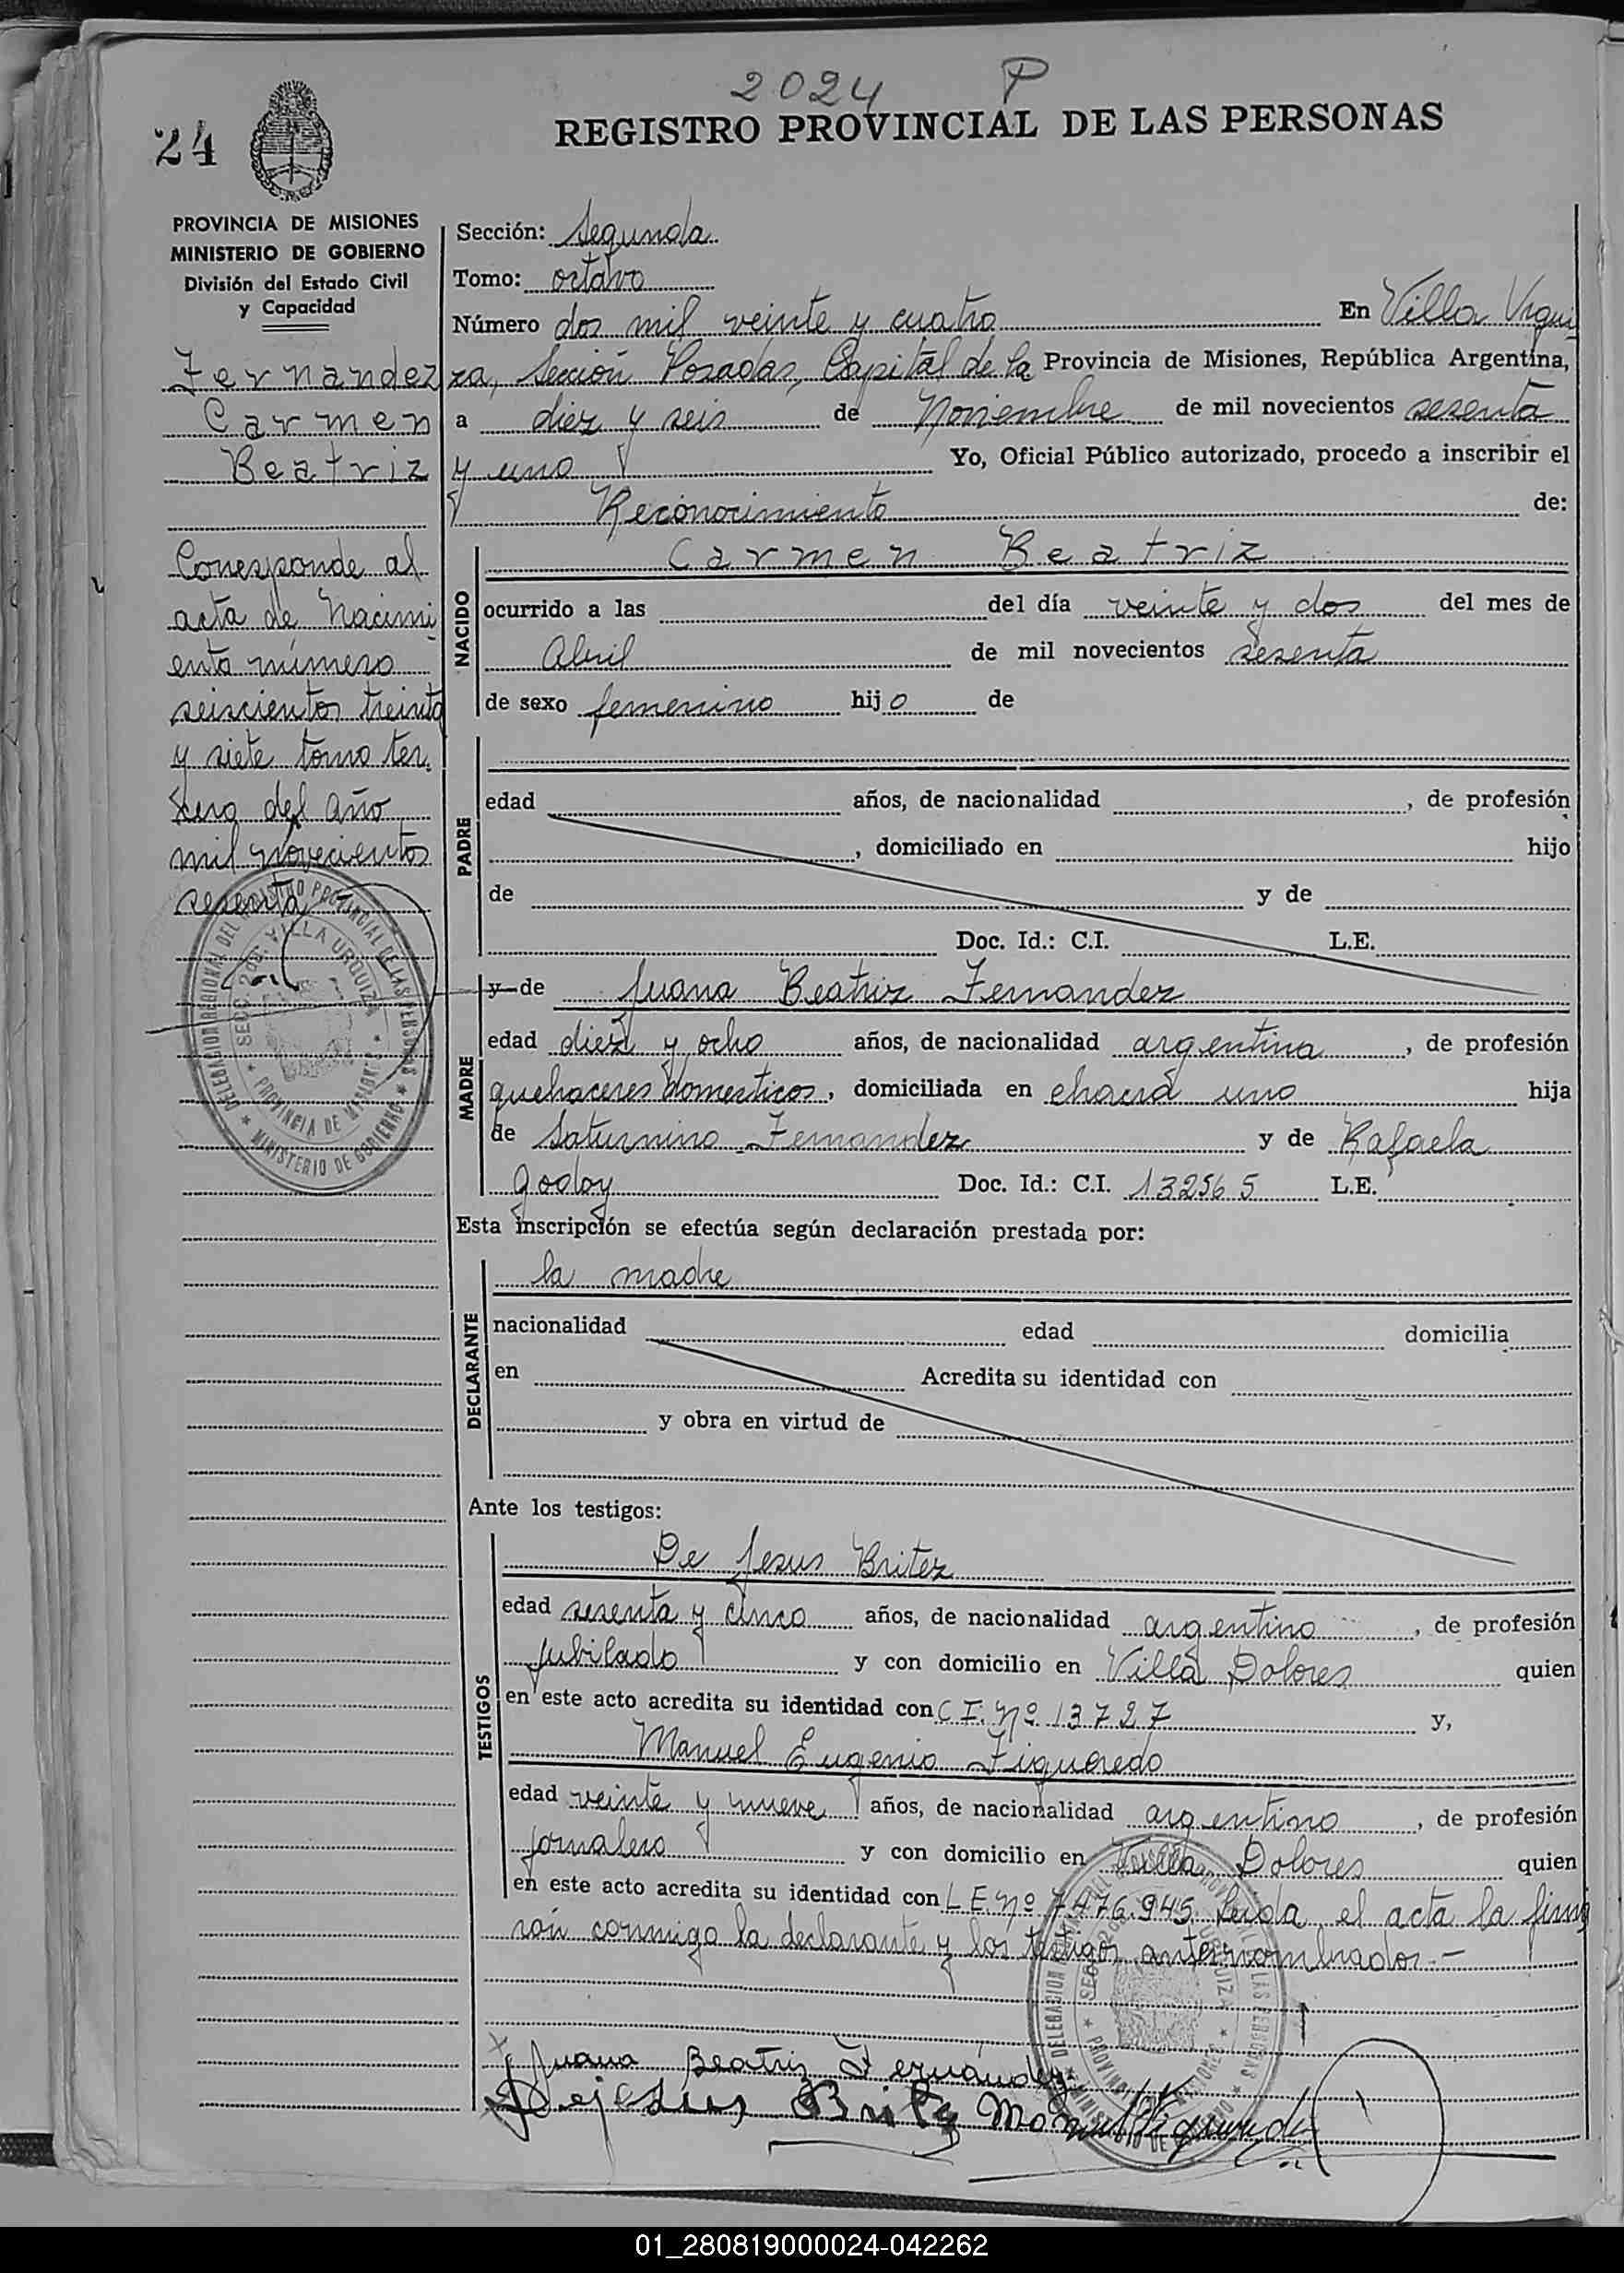 2024 P
24
REGISTRO PROVINCIAL DE LAS PERSONAS
PROVINCIA DE MISIONES
MINISTERIO DE GOBIERNO
División del Estado Civil
y Capacidad
Fernandez
Carmen
Beatriz
Corresponde al
acta de Nacimi
ento número
seiscientos treinta
y siete tomo ter.
cero del año
mil novecientos
sesenta
DELEGACION REGIONAL DEL REGISTRO PROVINCIAL DE LAS PERSONAS * MINISTERIO DE GOBIERNO *
SECC. 2da. VILLA URQUIZA * PROVINCIA DE MISIONES *
Sección: Segunda
Tomo: octavo
Número dos mil veinte y cuatro En Villa Urqui
za, Sección Posadas, Capital de la Provincia de Misiones, República Argentina,
a diez y seis de Noviembre de mil novecientos sesenta
y uno Yo, Oficial Público autorizado, procedo a inscribir el
Reconocimiento de:
NACIDO
Carmen Beatriz
ocurrido a las del día veinte y dos del mes de
Abril de mil novecientos sesenta
de sexo femenino hijo de
PADRE
edad años, de nacionalidad , de profesión
, domiciliado en hijo
de y de
Doc. Id.: C.I. L.E.
MADRE
y de Juana Beatriz Fernandez
edad diez y ocho años, de nacionalidad argentina , de profesión
quehaceres domesticos, domiciliada en chacra uno hija
de Saturnino Fernandez y de Rafaela
Godoy Doc. Id.: C.I. 132565 L.E.
Esta inscripción se efectúa según declaración prestada por:
DECLARANTE
la madre
nacionalidad edad domicilia
en Acredita su identidad con
y obra en virtud de
Ante los testigos:
TESTIGOS
De Jesus Britez
edad sesenta y cinco años, de nacionalidad argentino , de profesión
jubilado y con domicilio en Villa Dolores quien
en este acto acredita su identidad con C I. Nº 13727 y,
Manuel Eugenio Figueredo
edad veinte y nueve años, de nacionalidad argentino , de profesión
jornalero y con domicilio en Villa Dolores quien
en este acto acredita su identidad con L E. Nº 7476.945 Leida el acta la firma
ron conmigo la declarante y los testigos anternombrados.-
Juana Beatriz Fernández
Dejesus Britez Manuel Figueredo
01_280819000024-042262